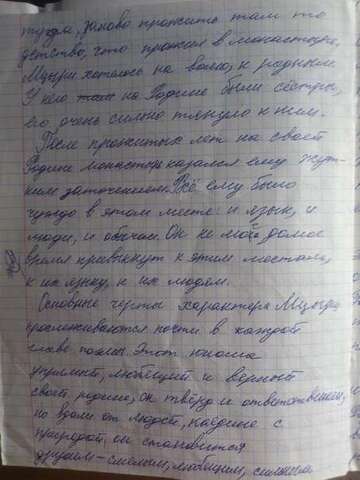 туда, заново прожить там то
детство, что прожил в монастыре.
Мцыри хотелось на волю, к родным.
У него там на Родине были сёстры,
его очень сильно тянуло к ним.
После прожитых лет на своей
Родине монастырь казался ему жут-
ким заточением. Всё ему было
чуждо в этом месте: и язык, и
люди, и обычаи. Он не мог долгое
время привыкнуть к этим местам,
к их языку, и их людям.
Основные черты характера Мцыри
прослеживаются почти в каждой
главе поэмы. Этот юноша
упрямый, любящий и верный
своей родине, он твёрд и ответственен,
но вдали от людей, наедине с
природой, он становится
другим - смелым, любящим, сильным